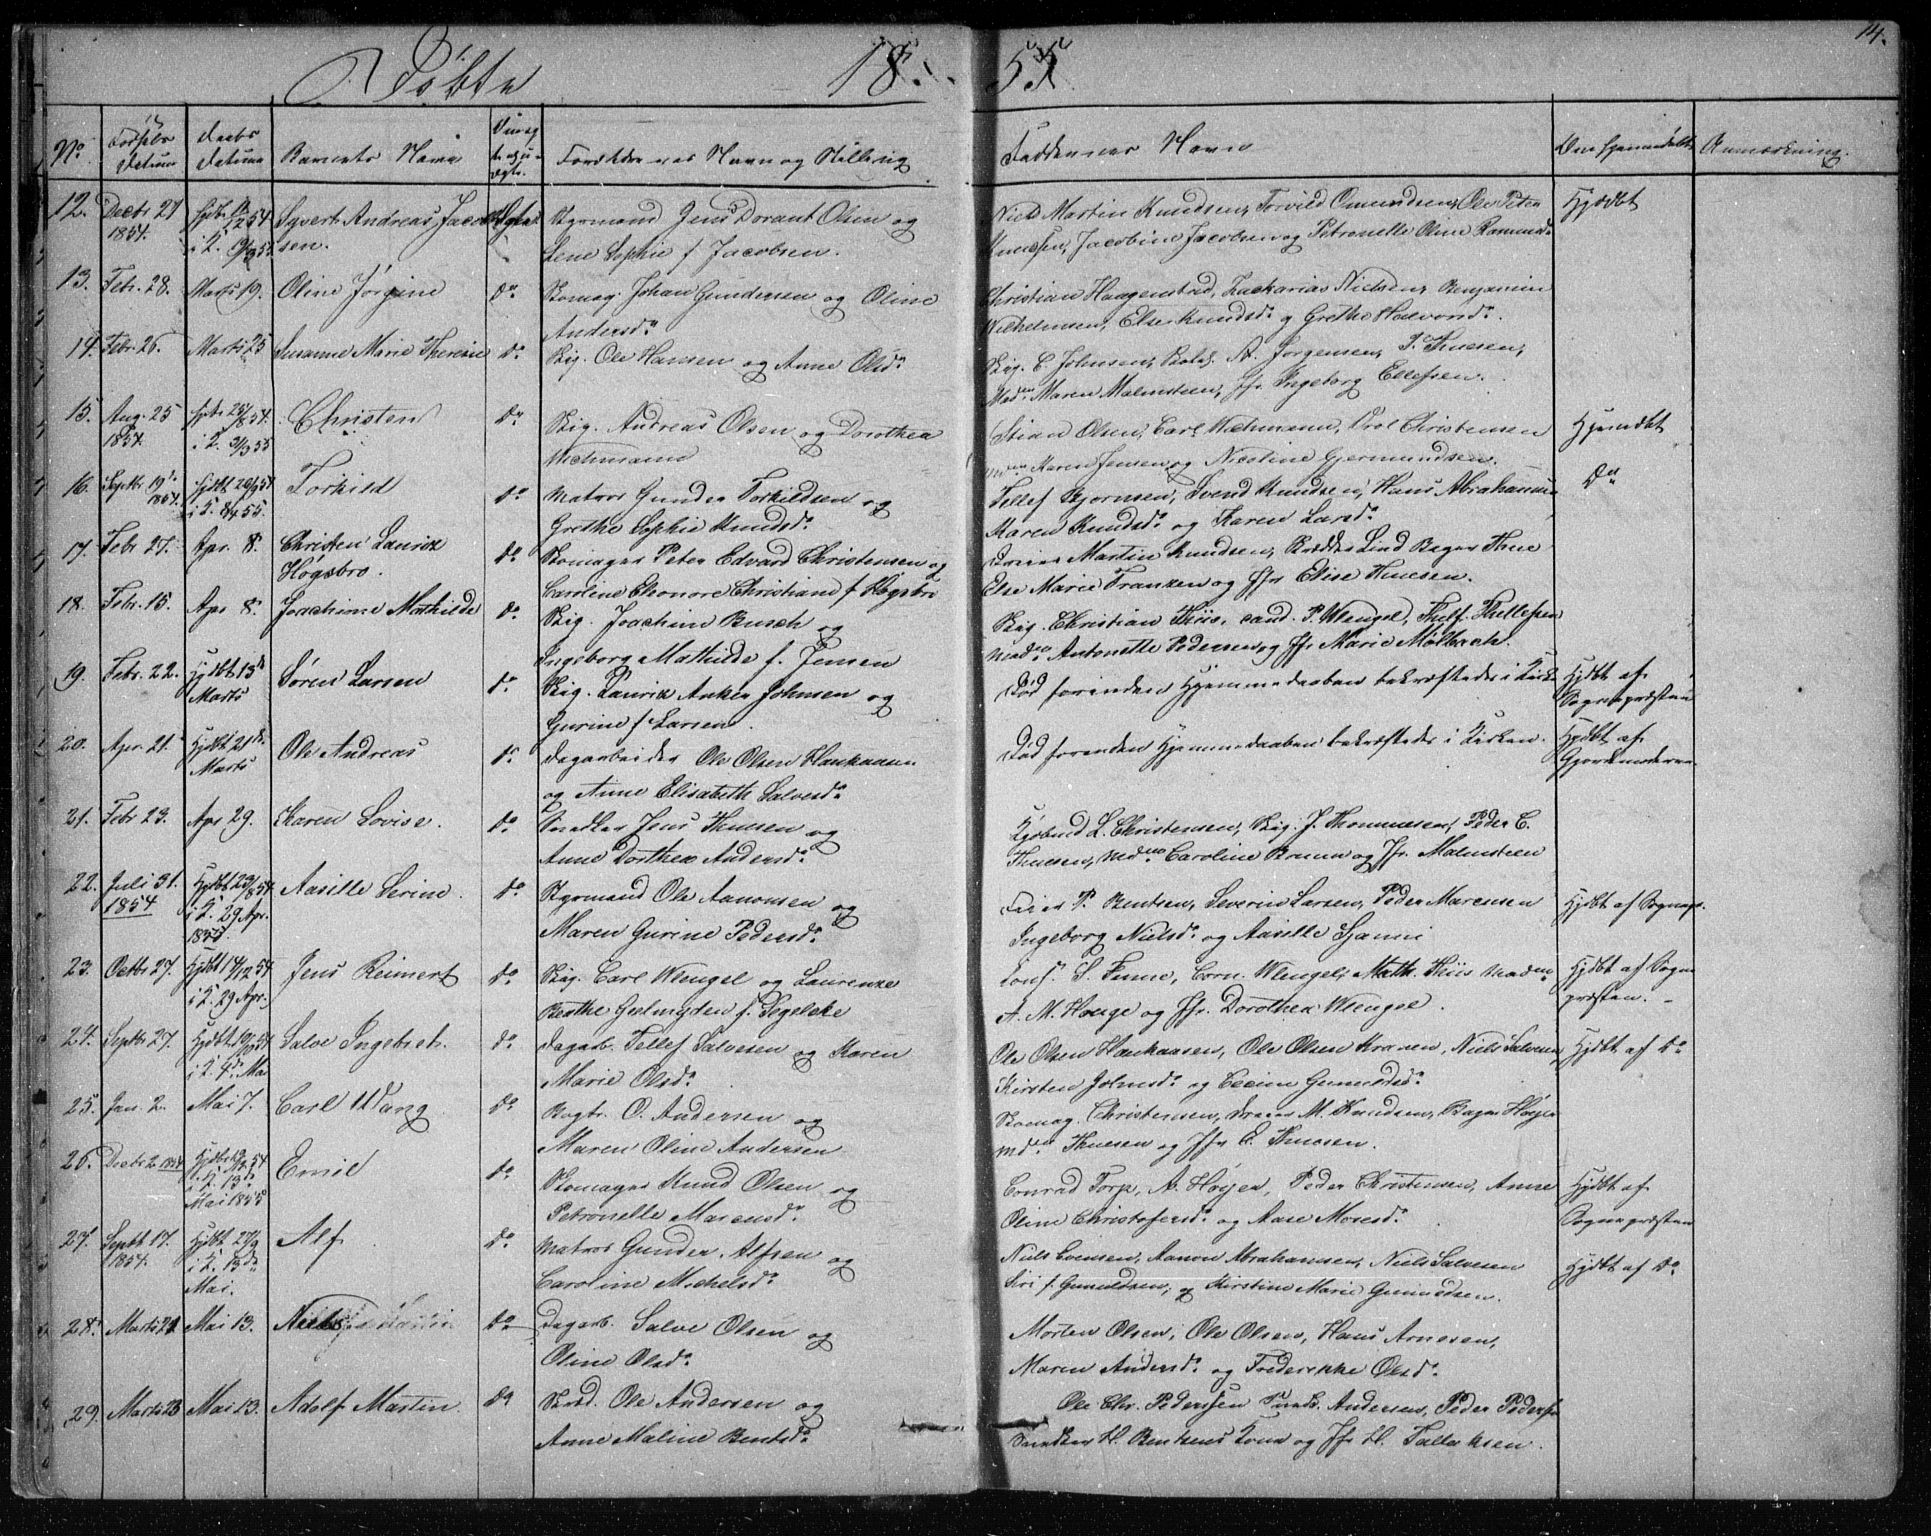 14.
Döbte 1855
No. Fødsels Datum Daabs Datum Barnets Navn Forældrenes Navn og Stilling Faddernes Navn Om hjemmedøbt Anmærkning.
12. Decbr 27 1854. Syvert Andreas Jacobsen. Styrmand Jens Dorant Olsen og
Lene Sophie f. Jacobsen.
Niels Martin Knudsen, Torvild Omundsen, Ole Peter
Knudsen, Jacobine Jacobsen og Petronelle Oline
Hjdbt
13. Febr. 28. Marts 19. Oline Jörgine do Skomag. Johan Gundersen og Oline
Andersdr
Christian Haagenstad, Zackarias Nielsen, Benjamin
Wilhelmsen, Else Knudsdr og Grethe Halvorsdr.
14. Febr. 26. Marts 25 Susanne Marie Theresie do Skig. Ole Hansen og Anne Olsdr
Skig. C. Johnsen, A. Jørgensen, P. Thuesen,
Madm Maren Malmsteen, Jfr Ingeborg Ellefsen.
15. Aug. 25 1854. 25/8 54. i K. 3/3 55 Christen do Skig. Andreas Olsen og Dorothea
Wichmann
Stian Olsen, Carl Wichmann, Christensen
Karen Jensen og Nicoline Gjermundsen.
Hjemdbt
16. Septbr 19 1854. Hjdbt 20/9 54 i K. 8/4 55. Torkild do Matros Gunder Torkildsen og
Grethe Sophie Knudsdr
Tellef Bjornsen, Svend Knudsen, Hans Abrahamsen
Maren Knudsdr og Karen Larsdr
Do
17. Febr 27. Apr. 8. Christen Lauritz
Høgsbro. do Skomager Peter Edvard Christensen og
Caroline Eleonore Christiane f. Høgsbro
Martin Knudsen, Lind Bager Thue
Else Marie Franzen og Jfr Elise Thuesen.
18. Febr. 15. Apr 8. Joachime Mathilde do Skig. Joachim Busch og
Ingeborg Mathilde f. Jensen
Skig. Christian Thiis, cand. P. Wengel, Thelf. Thellefsen
Madm Antonette Pedersen og Jfr Marie Mølbach.
19. Febr. 22. Hjdbt 13de
Marts Søren Larsen do Skig. Lauritz Anker Johnsen og
Gurine f. Larsen.
Död forinden Hjemmedaaben bekræftedes i Kirken
Hjdbt af
Sognepræsten
20. Apr. 21. Hjdbt 21de
Marts Ole Andreas do Dagarbeider Ole Olsen Haukaasen
og Anne Elisabeth Salvesdr
Död forenden Hjemmedaaben bekræftedes i Kirken.
Hjdbt af
Gjordemoderen
21. Febr 23. Apr 29. Karen Lovise. do Snedker Jens Thuesen og
Anne Dorthea Andersdr
Kjöbmd L. Christensen, Skig. J. Thommesen, Peder C.
Thuesen, Mdm Caroline Bruun og Jfr Malmsteen
22. Juli 31. 1854 Hjdbt 23/8 54.
i K. 29 Apr.
1855. Aasille Serine. do Styrmand Ole Aanonsen og
Maren Gurine Pedersdr
P. Bentsen, Severin Larsen, Peder Marensen
Ingeborg Nielsdr og Aasille
Hjdbt af Sognep.
23. Octbr 27. Hjdbt 14/12 54
i K. 29 Apr. Jens Reimert do Skig. Carl Wengel og Laurenze
Berthe f. Segelcke
S. Finne, Corn. Wengel, Math. Thiis Madm
A. M. Houge og Jfr. Dorothea Wengel.
Hjdbt af Sogne
præsten.
24. Septbr 27. Hjdbt 19/10 54
i K. 4de Mai Salve Ingebret. do Dagarb. Tellef Salvesen og Karen
Marie Olsdr
Ole Olsen Haukaasen, Ole Olsen, Niels Salvesen
Kirsten Johnsdr og
Hjdbt af Do
25. Jan. 2. Mai 7. Carl Wang do Bogtr. O. Andersen og
Maren Oline Andersen
Skomag. Christensen, M. Knudsen, Bager Høyer
Mdm Thuesen og Jfr E. Thuesen.
26. Decbr 2 1854 i K. 13de
Mai 1855 Emil do Skomager Knud Olsen og
Petronelle Marensdr
Conrad Torp, A. Høyer, Peder Christensen, Anne
Oline Christofersdr og Aase Mosesdr
Hjdbt af
Sognepræsten
27. Septbr 17. 1854. Hjdbt 27/9
i K. 13de
Mai. Alf do Matros Gunder Alfsen og
Caroline Michelsdr
Niels Evensen, Aanon Abrahamsen, Niels Salvesen
Siri f. Gunuldsen, og Kirstine Marie Gunuldsen.
Hjdbt af Do
28. Marts 21 Mai 13. Niels do Dagarb. Salve Olsen og
Oline Olsdr
Morten Olsen, Ole Olsen, Hans Arnesen,
Maren Andersdr og Frederikke Olsdr
29. Marts 23 Mai 13. Adolf Martin. do Ole Andersen og
Anne Maline Bentsdr
Ole Chr. Pederssen Andersen, Peder Pedersen
Snedker H. Bentsens Kone og Jfr H. Tallaksen.